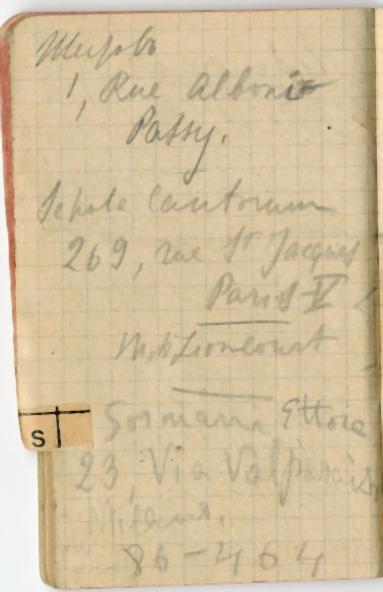 1, Rue Alboni
Passy.
Schola Cantorum
269, rue St Jacques
Paris V
Lioncourt
S
Sormani Ettore
23, Via Valparaiso
Milano.
86-464